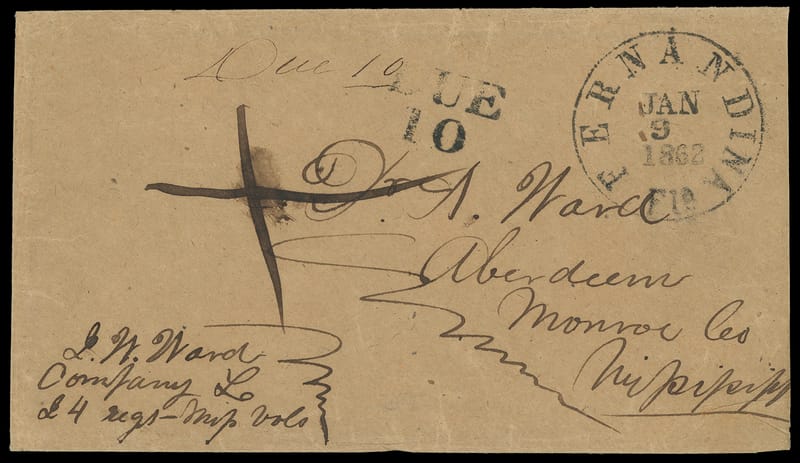 Due 10
DUE
10
FERNANDINA
JAN
9
1862
Fla
Dr. A. Ward
Aberdeen
Monroe Co
Missippi
Company L
regt Miss Vols